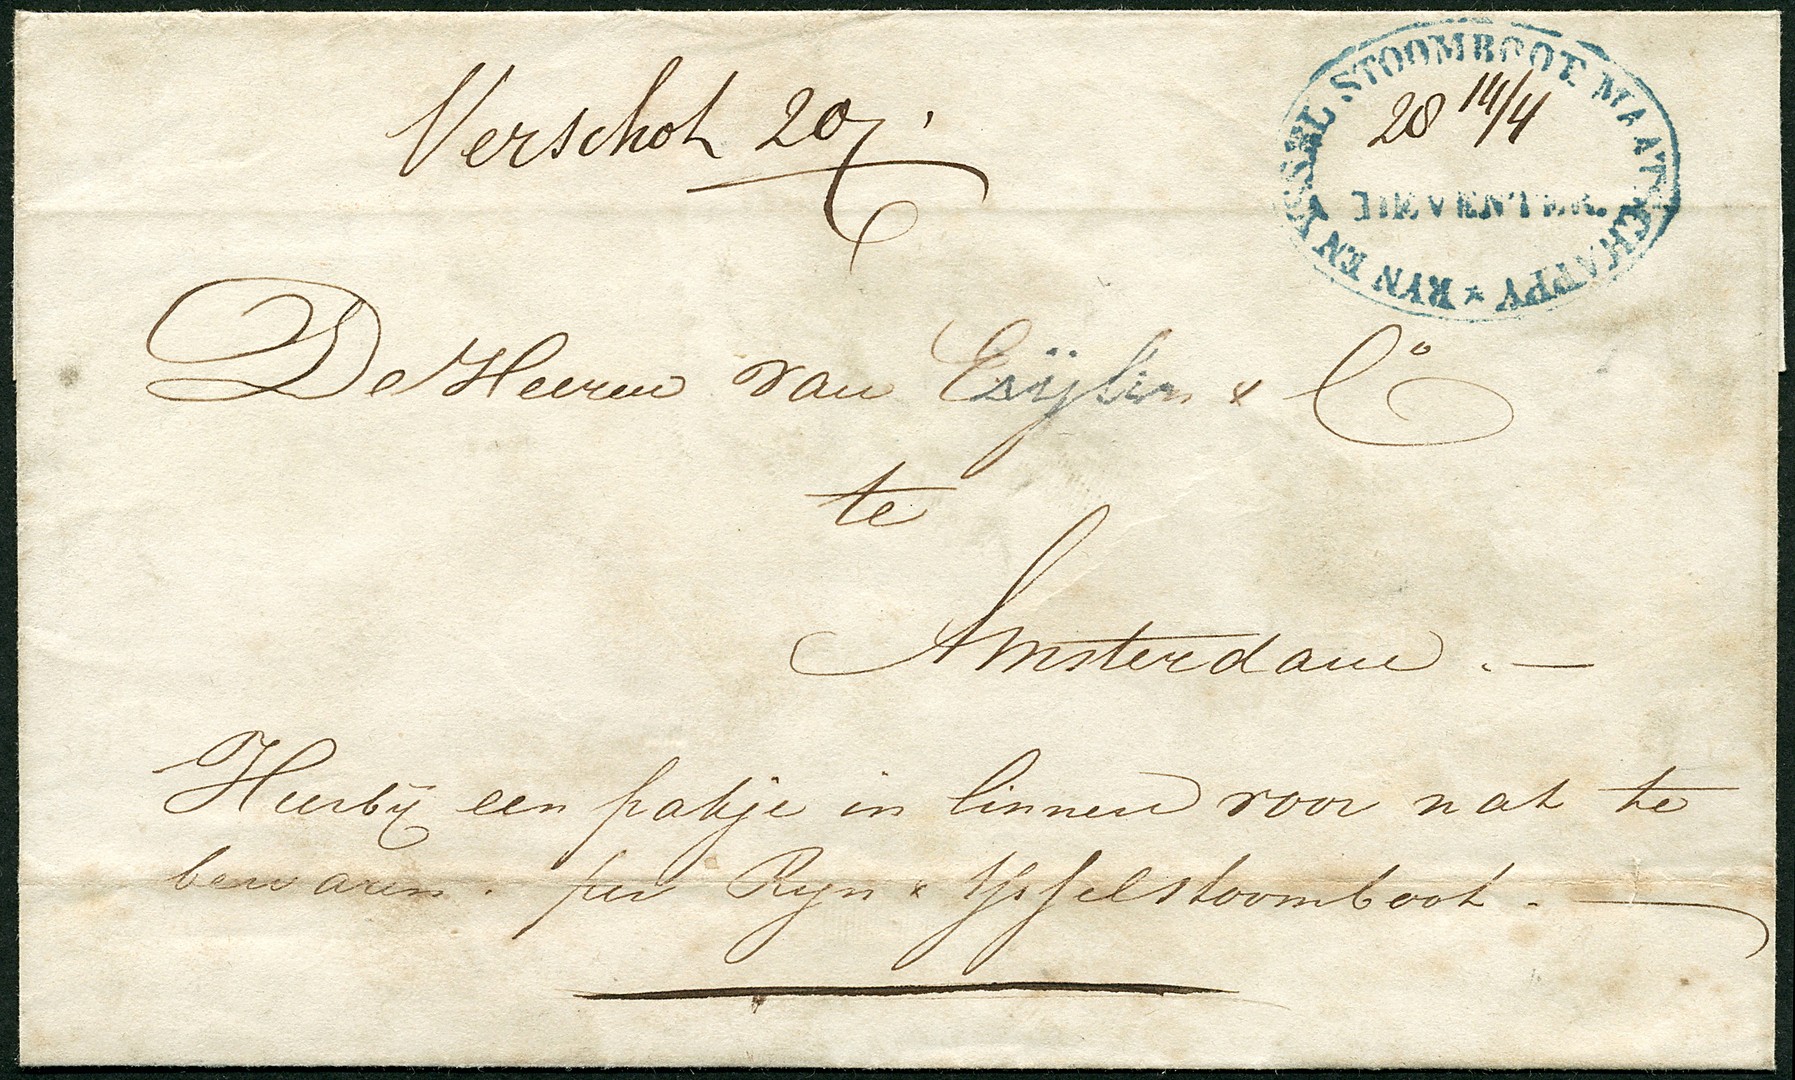 Verschot 20
RYN EN YSSEL STOOMBOOT MAATSCHAPPY *
28 14/4
De Heeren van & Co
te
Amsterdam. —
Hierbij een pakje in linnen voor nat te
bewaren. per Ryn & Ysselstoomboot. —